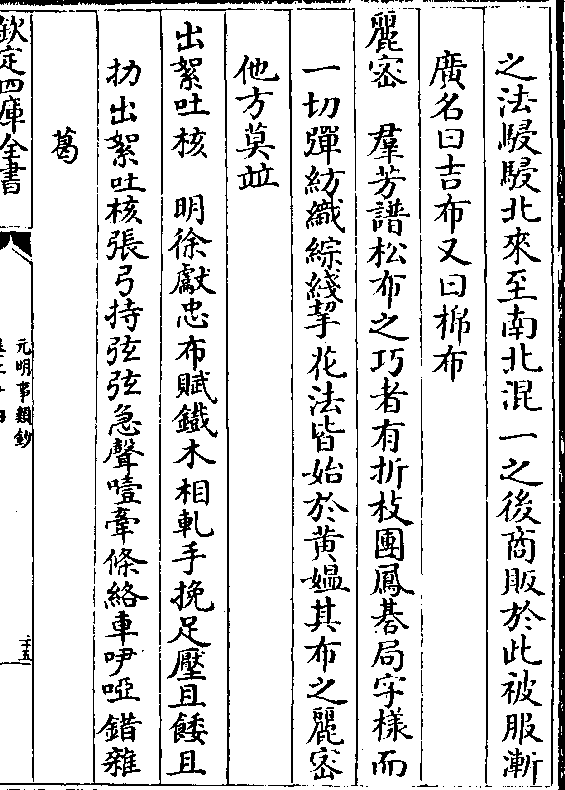 之法駸駸北來至南北混一之後商販於此被服漸
廣名曰吉布又曰棉布
麗密 羣芳譜松布之巧者有折枝團鳳棊局字様而
一切彈紡織綜綫挈花法皆始於黄媪其布之麗密
他方莫竝
出絮吐核 明徐獻忠布賦鐵木相軋手挽足壓且餧且
扐出絮吐核張弓持弦弦急聲噎牽條絡車咿啞錯雜
葛
欽定四庫全書
元明事類鈔
二十五